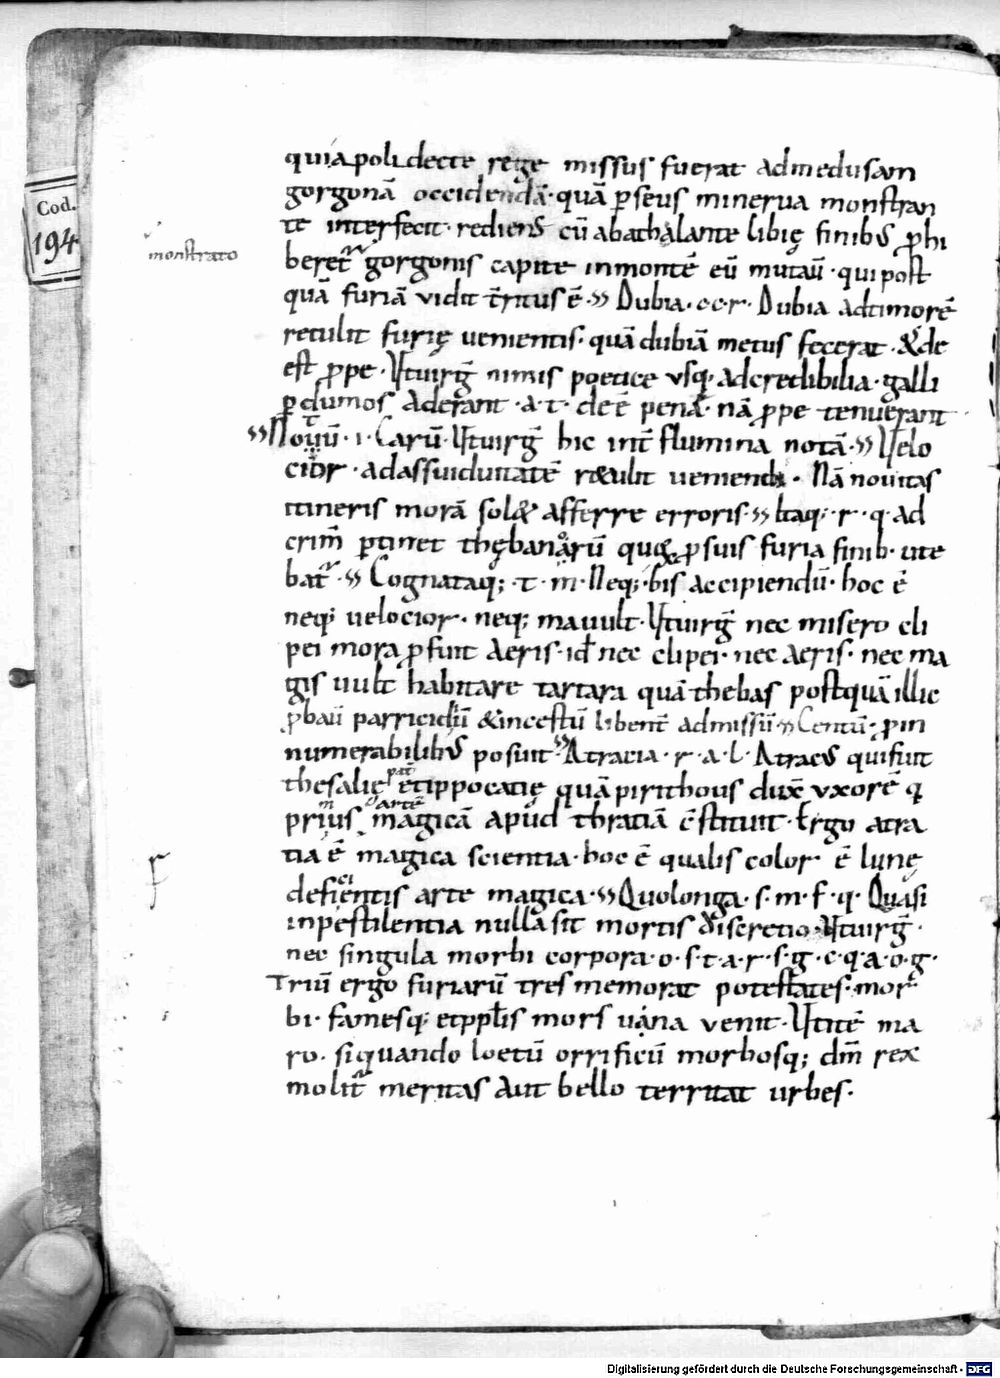 Cod.
194
quia polidecte rege missus fuerat ad medusam
gorgonā occidendā· quā pseus minerua monstran
te interfecit· rediens cū ab athalante libię finibus phi
monstrato
beret gorgonis capite in montē eū mutauit· qui post
quā furiā vidit territus ē· Dubia· c·c·r· Dubia ad timorē
retulit furię uenientis· quā dubiā metus fecerat· & de
est ppe· Ut uirḡ nimis poetice usq; ad credibilia· galli
p dumos aderant· a·t· de ē pena· nā ppe tenuerant
Notū· i· Carū· Ut uirḡ hic int flumina nota· Uelo
cior· ad assuiduitatē retulit ueniendi· Nā nouitas
itineris morā sol& afferre erroris· Itaq; r· q· ad
crim̄ ptinet thębanorū quę p suis furia finib· ute
bat· Cognataq; t· m· Neq; bis accipiendū· hoc ē
neq; uelocior· neq; mauult· Ut uirḡ nec misero cli
pei mora pfuit aeris· id nec clipei· nec aeris· nec ma
gis uult habitare tartara quā thebas postquā illic
pbauit parricidiū & incestū libent admissū· Centū· p in
numerabilibus posuit· Atracia· r· a· l· Atracus qui fuit
thesalię pat ē ippocatię quā pirithous dux̄ vxorē q
prius artē magicā apud thratiā c̄stituit· Ergo atra
tia ē magica scientia· hoc ē qualis color ē lunę
deficientis arte magica· Quo longa· s· m· f· q· Quasi
in pestilentia nulla sit mortis discretio· Ut uirḡ·
nec singula morbi corpora· o· s· t· a· r· s· g· c· q· a· o· g·
Triū ergo furiarū tres memorat potestates· mor
bi· famesq; et pplis mors uana venit· Ut itē ma
ro· si quando loetū orrificū morbosq; dm̄ rex
molit meritas aut bello territat urbes·
Digitalisierung gefördert durch die Deutsche Forschungsgemeinschaft - DFG